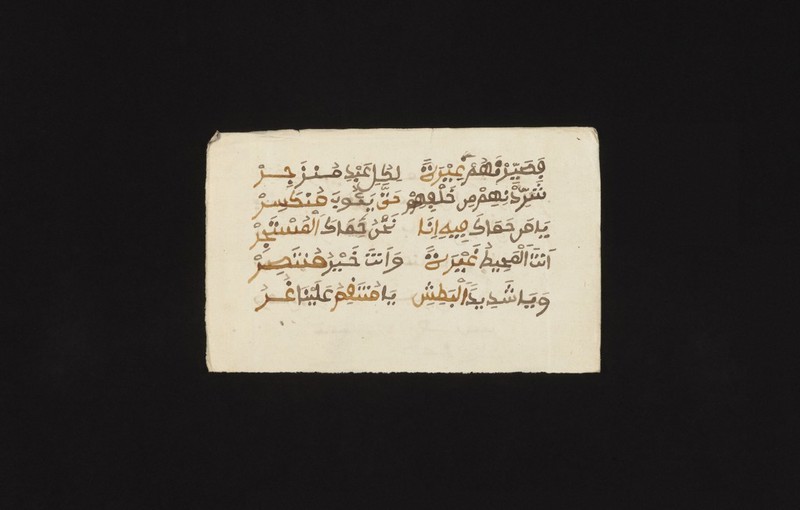 فَصَيِّرْنَهُمْ عِبْرَةً لِكُلِّ عَبْدٍ مُنْزَجِرْ
شَرِّدْ بِهِمْ مِنْ خَلْفِهِمْ حَتَّى يَكُونَ مُنْكَسِرْ
يَا مَنْ حِمَاكَ فِيهِ اِنَّا نَحْنُ حِمَاكَ الْمُسْتَجِرْ
اَنْتَ الْمُحِيطُ غَيْرَةً وَاَنْتَ خَيْرُ مُنْتَصِرْ
وَيَا شَدِيدَ الْبَطْشِ يَا مُنْتَقِمُ عَلَيْنَا غُرْ